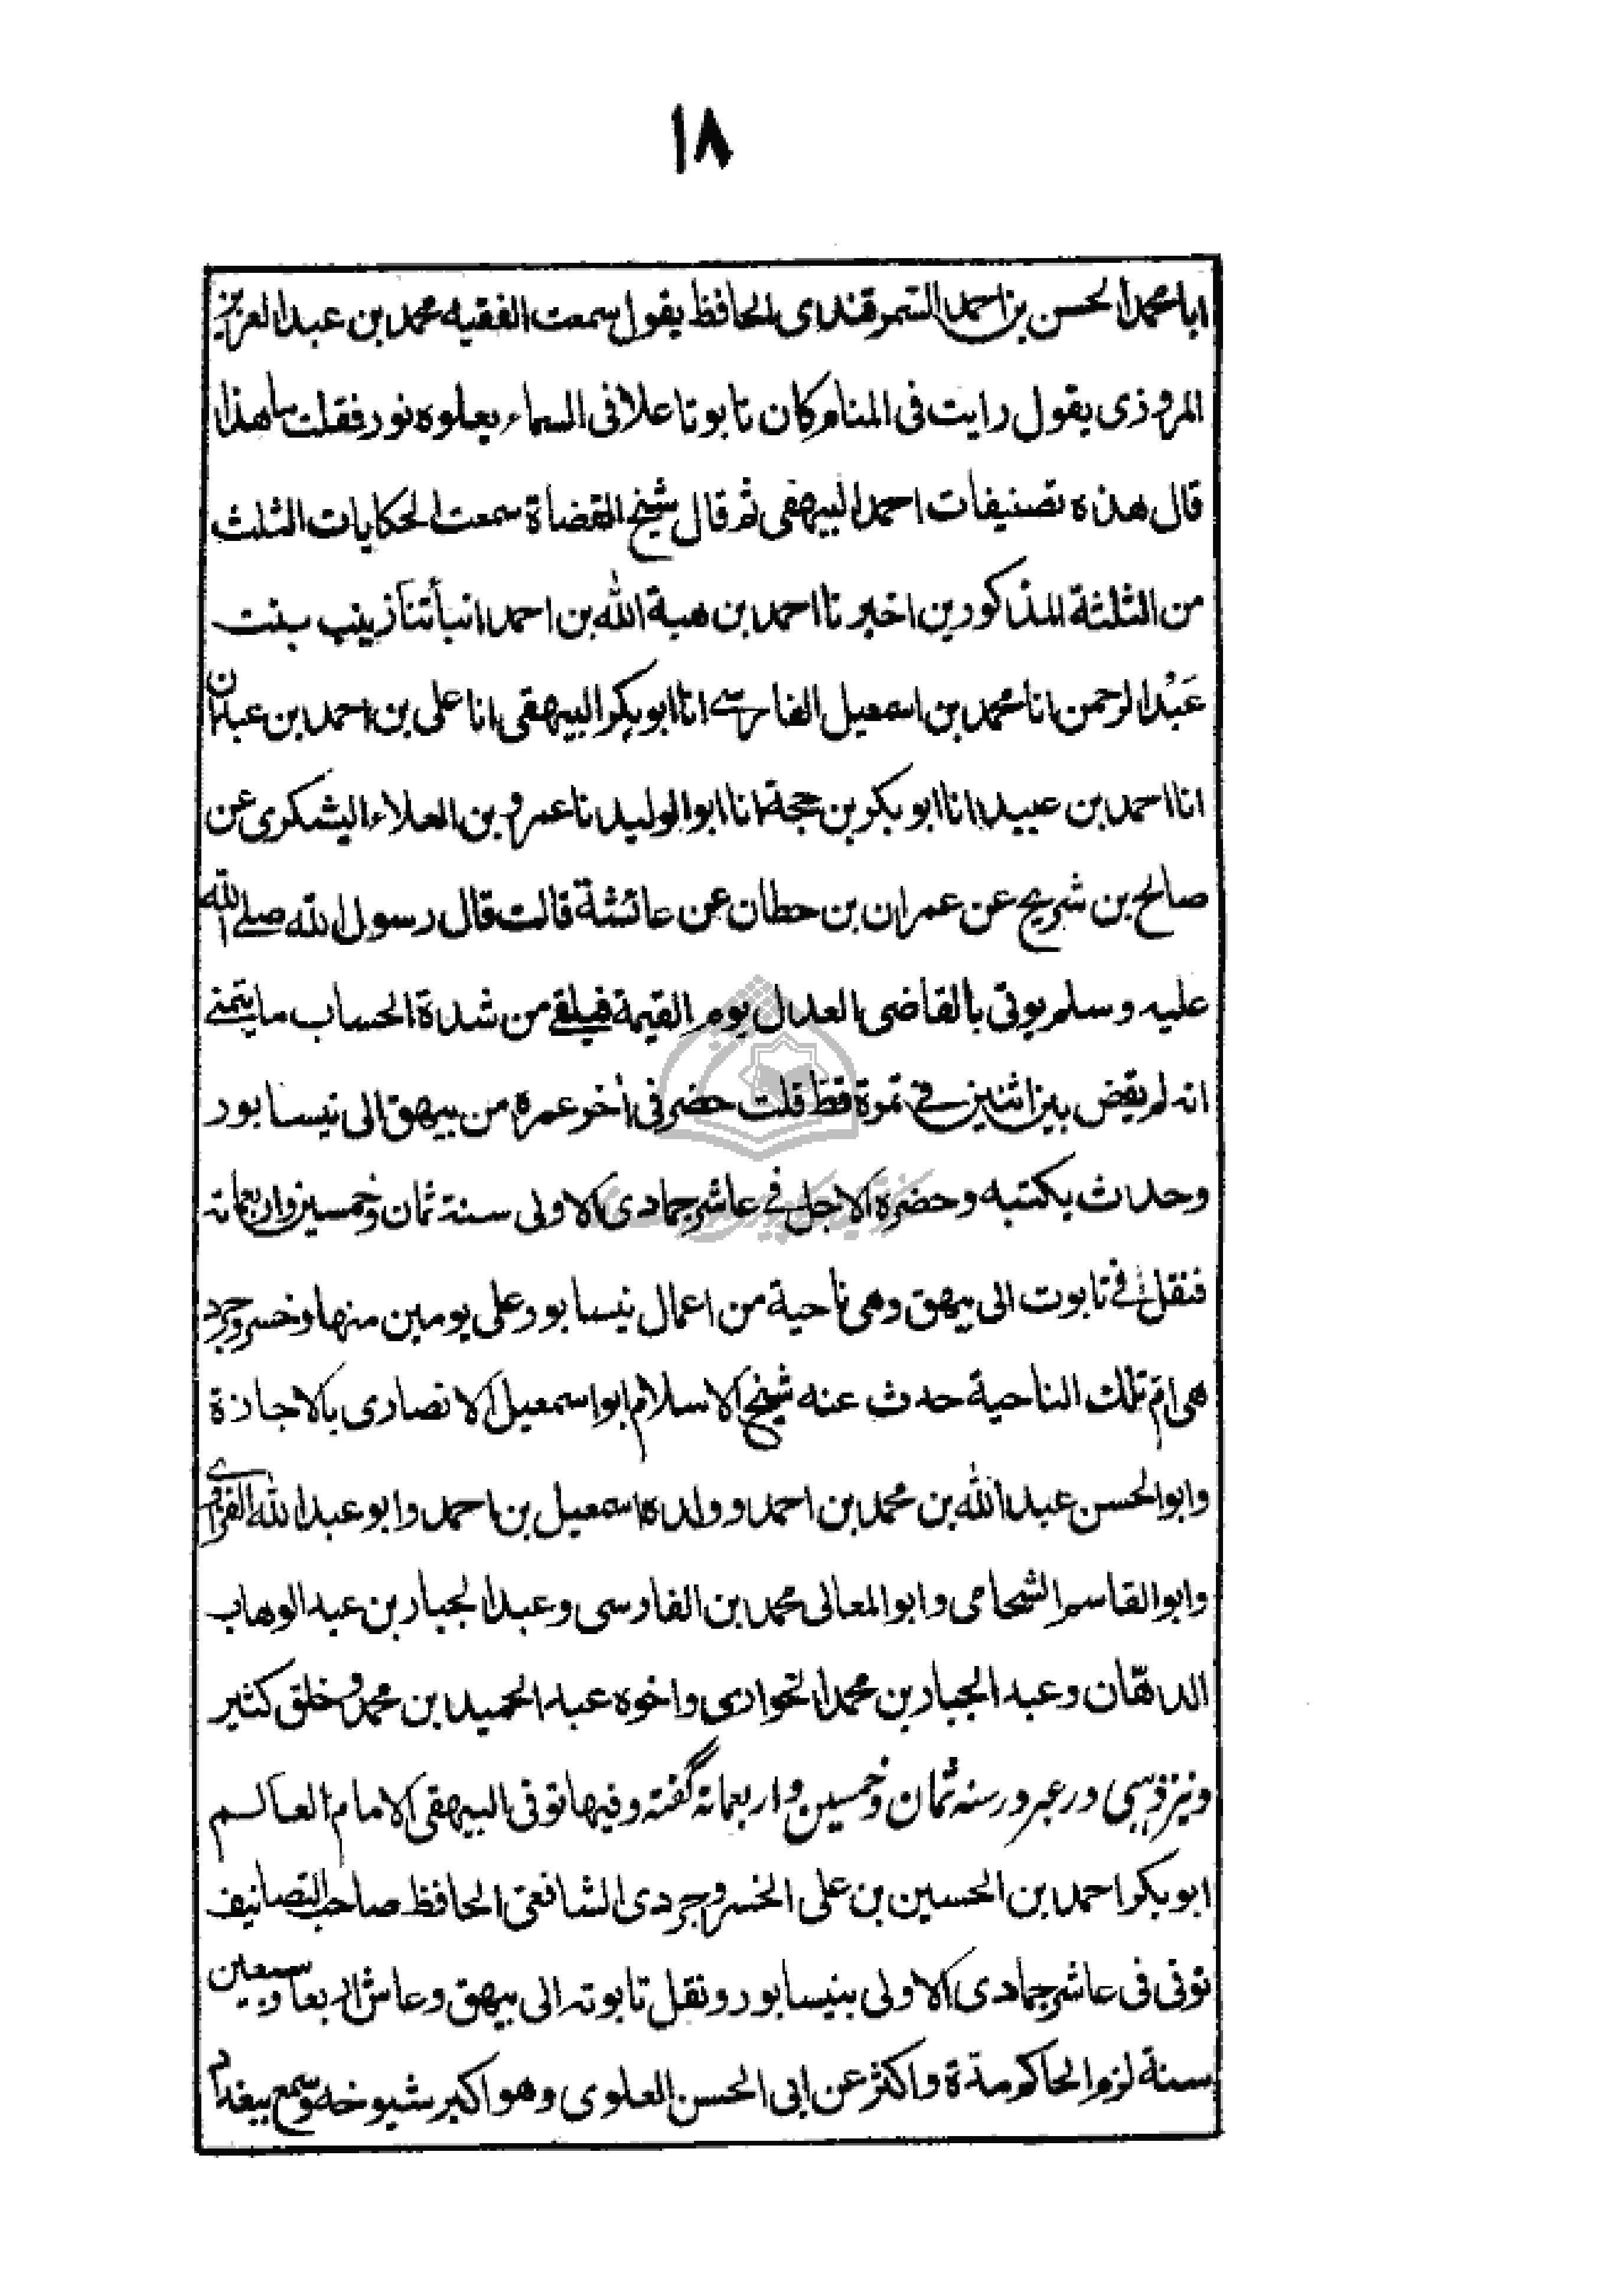 ١٨
ابا محمد الحسن بن احمد السمرقندی الحافظ یقول سمعت الفقیه محمد بن عبد العزیز
المروزی یقول رایت فی المنام کان تابوتا علا فی السماء یعلوه نور فقلت ما هذا
قال هذه تصنیفات احمد البیهقی ثم قال شیخ القضاة سمعت الحکایات الثلث
من الثلثة المذکورین اخبرنا احمد بن هبة الله بن احمد انبأتنا زینب بنت
عبد الرحمن انا محمد بن اسمعیل الفارسی انا ابو بکر البیهقی انا علی بن احمد بن عبدان
انا احمد بن عبید انا ابو بکر بن حجة انا ابو الولید نا عمرو بن العلاء الیشکری عن
صالح بن شریح عن عمران بن حطان عن عائشة قالت قال رسول الله صلی الله
علیه وسلم یوتی بالقاضی العدل یوم القیمة فیلقی من شدة الحساب ما یتمنی
انه لم یقض بین اثنین فی تمرة قط قلت حضر فی أخر عمره من بیهق الی نیسابور
وحدث بکتبه وحضره الاجل فی عاشر جمادی الاولی سنة ثمان وخمسین واربعمائة
فنقل فی تابوت الی بیهق وهی ناحیة من اعمال نیسابور علی یومین منها وخسروجرد
هی ام تلک الناحیة حدث عنه شیخ الاسلام ابو اسمعیل الانصاری بالاجازة
وابو الحسن عبد الله بن محمد بن احمد وولده اسمعیل بن احمد وابو عبد الله الفراوی
وابو القاسم الشحامی وابو المعالی محمد بن الفارسی وعبد الجبار بن عبد الوهاب
الدهّان وعبد الجبار بن محمد الخواری واخوه عبد الحمید بن محمد وخلق کثیر
ونیز ذهبی در عبر در سنه ثمان وخمسین واربعمائة گفته وفیها توفی البیهقی الامام العالم
ابو بکر احمد بن الحسین بن علی الخسروجردی الشافعی الحافظ صاحب التصانیف
توفی فی عاشر جمادی الاولی بنیسابور ونقل تابوته الی بیهق وعاش اربعا وسبعین
سنة لزم الحاکم مدة واکثر عن ابی الحسن العلوی وهو اکبر شیوخه وسمع ببغداد